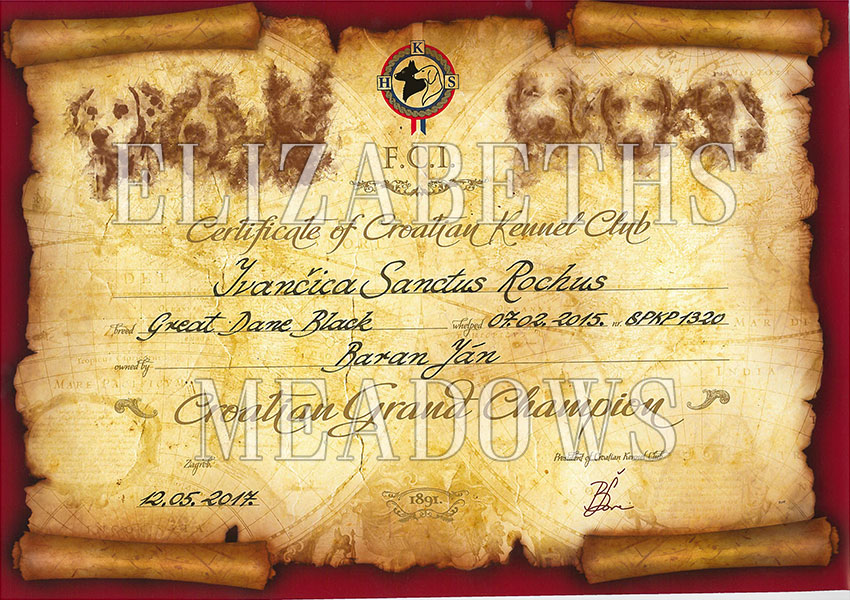 K
H S
F.C.I.
ELIZABETHS
Certificate of Croatian Kennel Club
Ivančica Sanctus Rochus
breed Great Dane Black whelped 07.02.2015. nr. SPKP 1320
owned by Baran Ján
MEADOWS
Croatian Grand Champion
Zagreb: President of Croatian Kennel Club
12.05.2017.
1891.